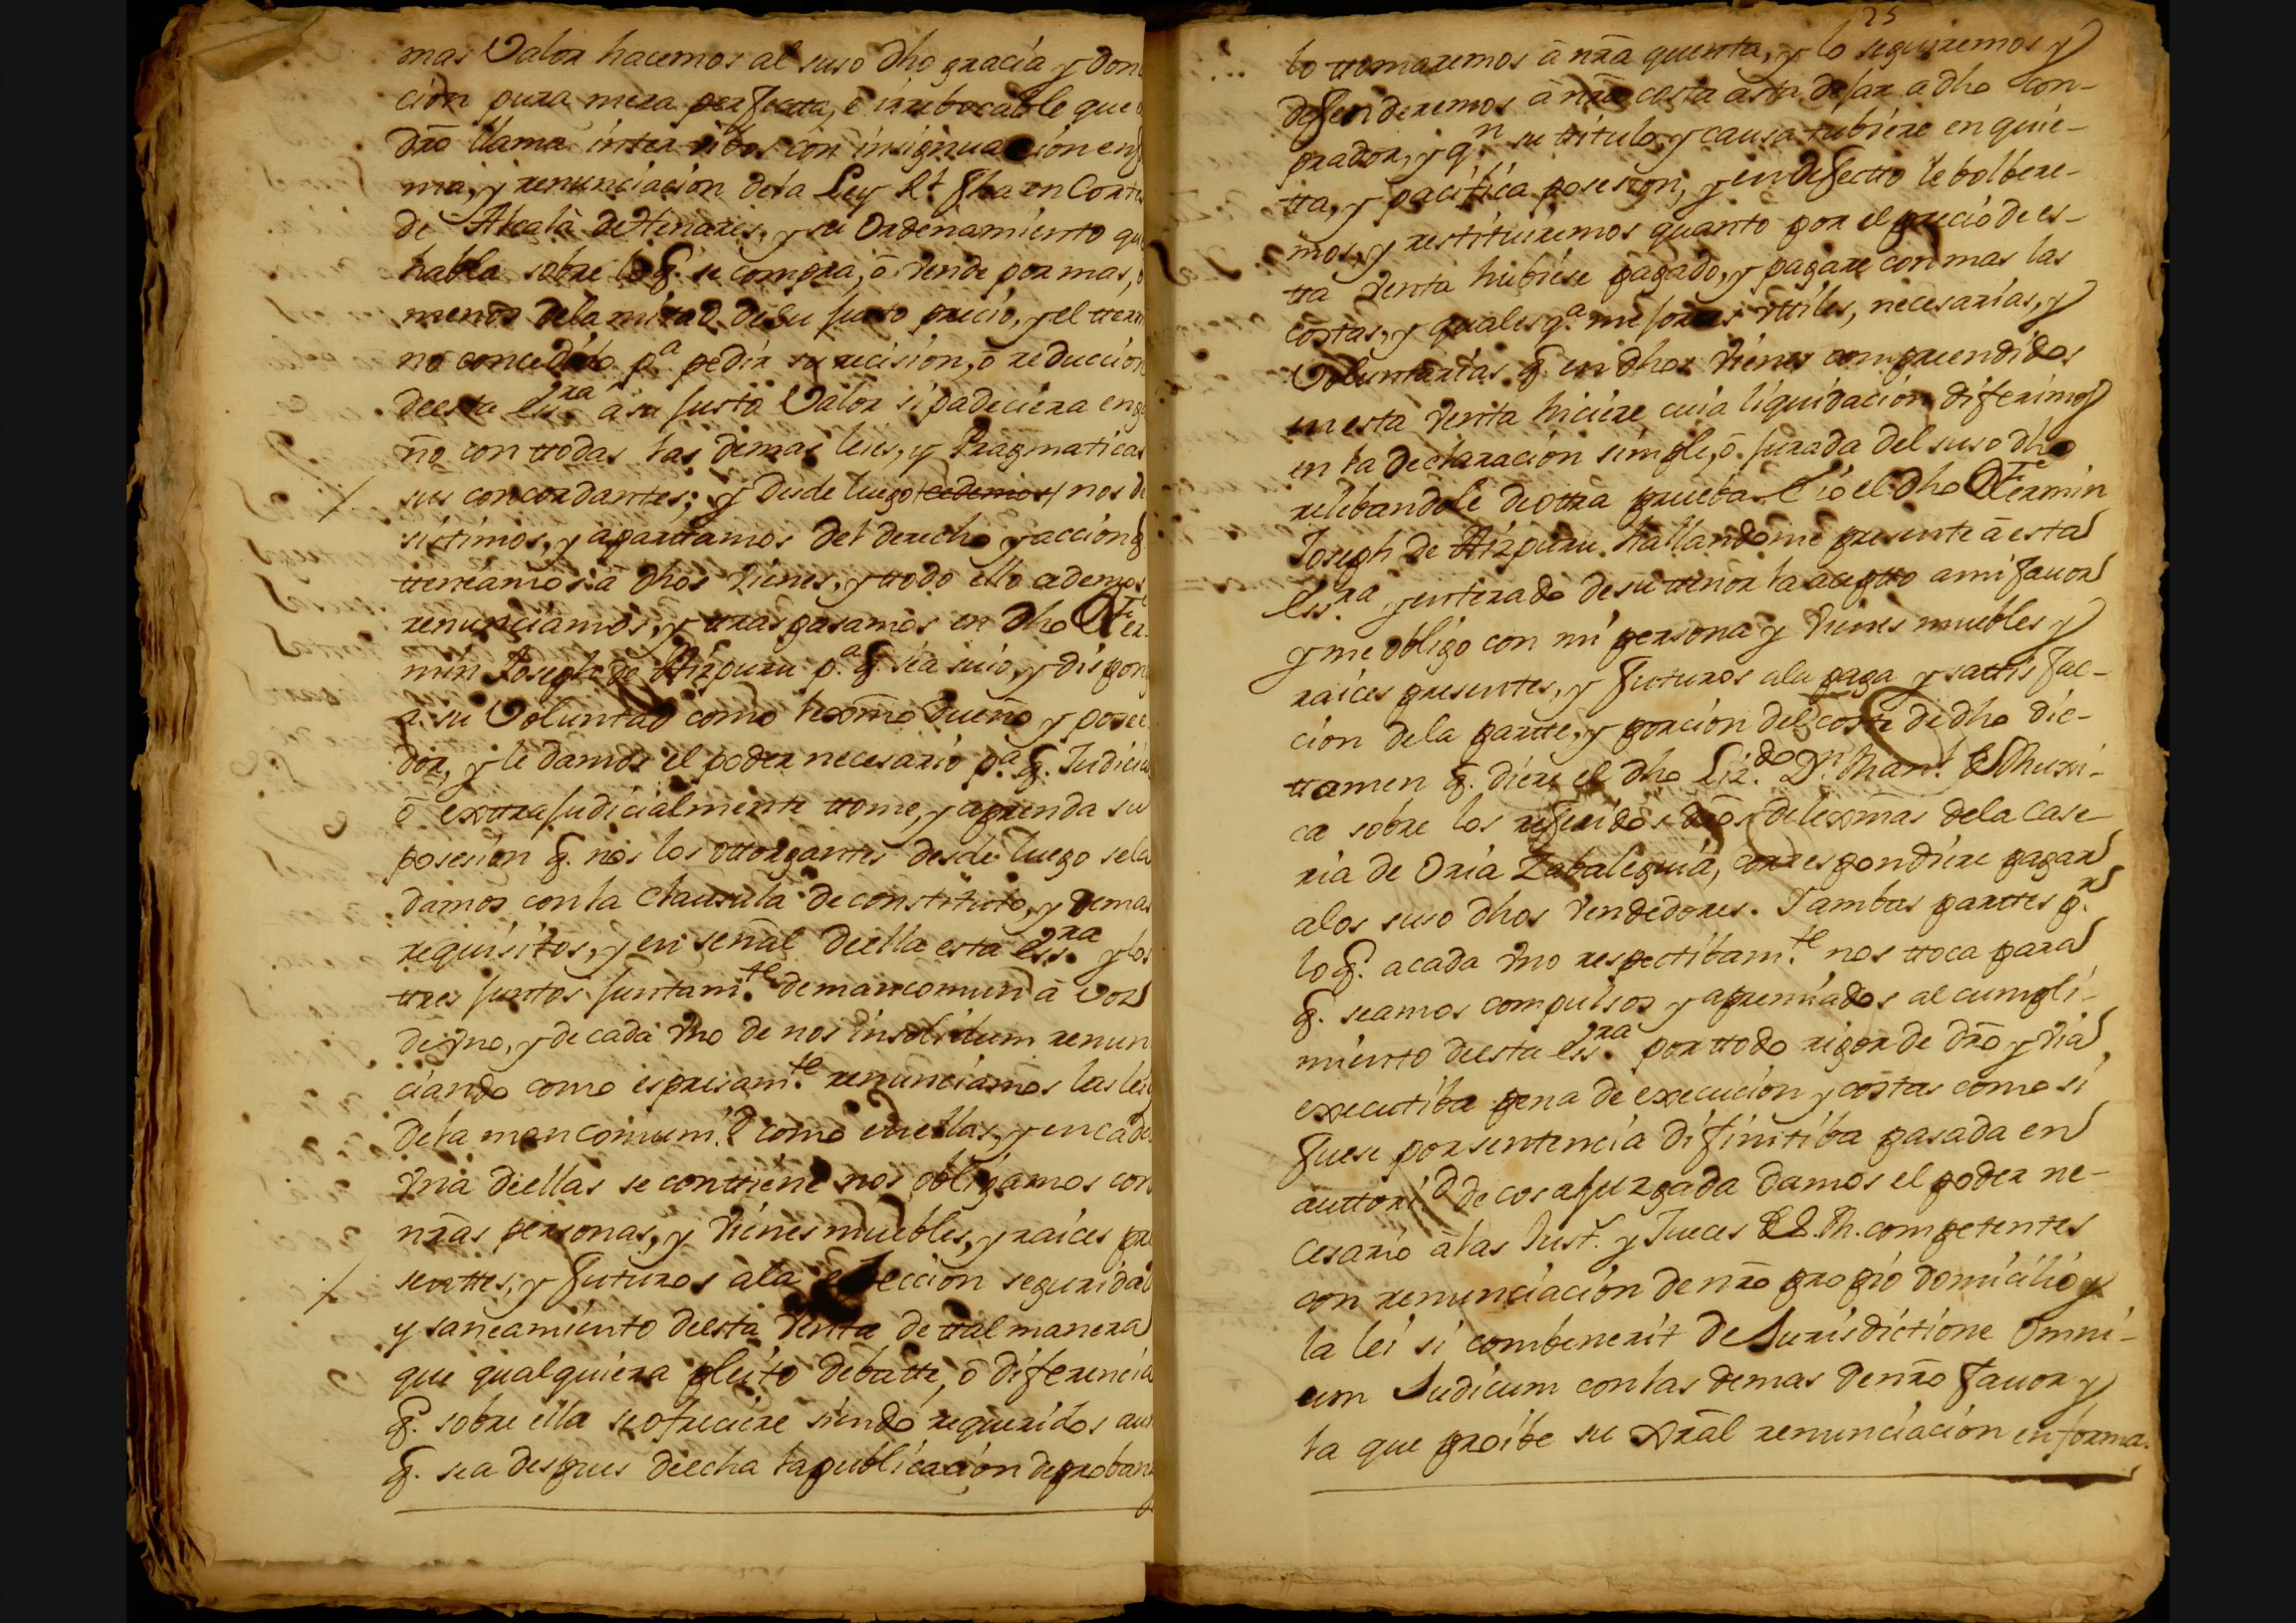 mas Valor hacemos al suso dho gracia y don
cion pura mera perfecta, é irrebocable que
dro llama inter vibos con insignuacion enf
ma, y renunciacion dela Ley Rl. fha en Corte
de Alcalà de Henares, y su Ordenamiento qu
habla sobre lo q. se compra, ò vende por mas,
menos dela mitad de su justo precio, y el ttérm
no concedido pa. pedir su recision, ò reduccion
deesta essra. à su justo Valor si padeciera eng
ño con ttodas las demas leies, y Pragmaticas
sus concordantes; y desde luego cedemos nos de
sistimos, y aparttamos del derecho y accion q
tteniamos à dhos vienes, y ttodo ello cedemos
renunciamos, y ttraspasamos en dho Dn Fer
min Joseph de Aizpuru pa. q. sea suio, y dispon
a su Voluntad como lexmo dueño y posee
dor, y le damos el poder necesario pa. q. Judicia
ò exttrajudicialmente ttome, y aprenda su
posesion q. nos los ottorgantes desde luego sela
damos con la Clausula de constituto, y demas
requisitos, y en señal deella esta essra. y los
ttres juntos juntamte. demancomun à voz
de vno, y de cada vno de nos insolidum renun
ciando como espresamte. renunciamos las lei
dela mancomunid. como enellas, y en cada
vna deellas se conttiene nos obligamos con
nras personas, y vienes muebles, y raices pre
senttes, y futuros ala eviccion seguridad
y saneamiento deesta Venta de ttal manera
que qualquiera pleito debatte, ò diferencia
q. sobre ella se ofreciere siendo requeridos aun
q. sea despues deecha la publicacion de proban
25
lo ttomaremos à nra quentta, y lo seguiremos y
defenderemos à nra costa asta dejar a dho Con-
prador, y qn. su ttitulo, y causa tubiere en quie-
tta, y pacifica posesion, y en defectto le bolbere-
mos, y restituiremos quanto por el precio de es-
tta Venta hubiese pagado, y pagare con mas las
costas, y qualesqa. mejoras vttiles, necesarias, y
Voluntarias q. en dhos vienes comprendidos
en esta Venta hiciere cuia liquidacion diferimos
en la declaracion simple, ò jurada del suso dho
relebandole de ottra prueba. E io el dho Dn Fermin
Joseph de Aizpuru hallandome presente à esta
essra. y enterado de su ttenor la aceptto a mi favor
y me obligo con mi persona y vienes muebles y
raices presentes, y futuros ala paga y sattisfac-
cion dela partte, y porcion del coste de dho dic-
ttamen q. diere el dho Lizdo. Dn. Manl. de Muxi-
ca sobre los referidos dros de lexmas dela Case-
ria de Oria Zabaleguia, correspondiere pagar
alos suso dhos Vendedores. Y ambas parttes pr.
lo q. acada vno respectibamte. nos ttoca para
q. seamos compulsos y apremiados al cumpli-
miento deesta essra. por ttodo rigor de dro y via
executiba pena de execucion y costas como si
fuese por sentencia difinitiba pasada en
auttorid. de cosa juzgada damos el poder ne-
cesario à las Just. y Jueces de S. M. competentes
con renunciacion de nro propio domicilio y
la lei si combenerit de Jurisdictione Omni-
um Judicum con las demas de nro favor y
la que proibe su xral renunciacion en forma.